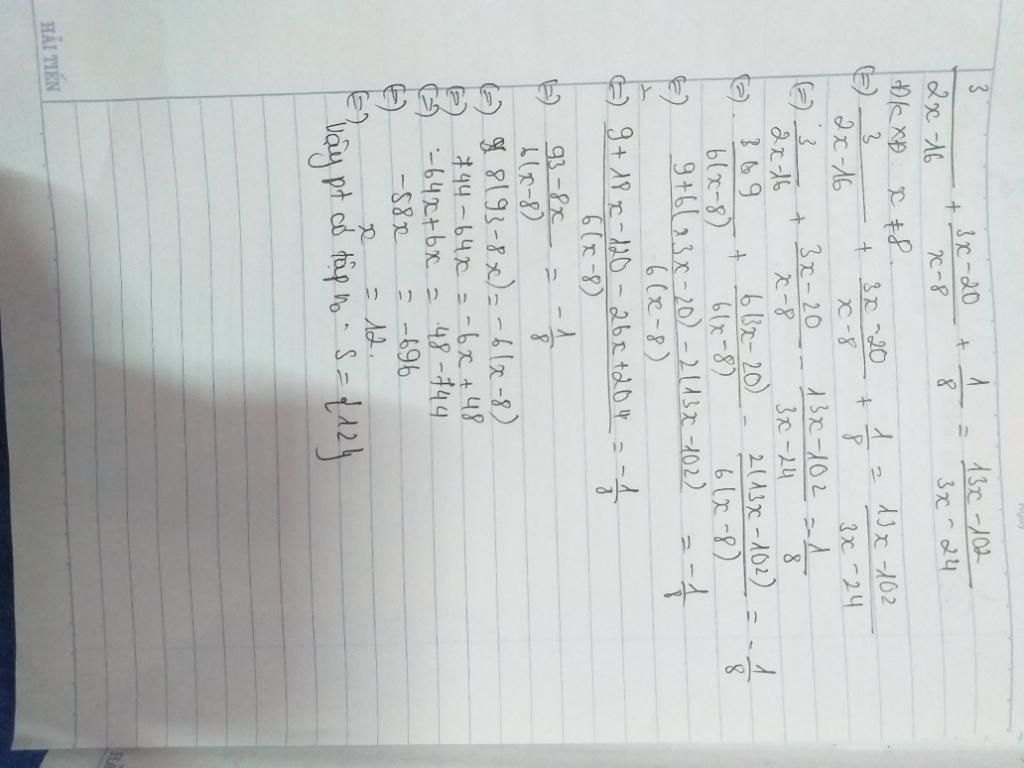 3/(2x-16) + (3x-20)/(x-8) + 1/8 = (13x-102)/(3x-24)
ĐKXĐ: x ≠ 8
(=) 3/(2x-16) + (3x-20)/(x-8) + 1/8 = (13x-102)/(3x-24)
(=) 3/(2x-16) + (3x-20)/(x-8) - (13x-102)/(3x-24) = 1/8
(=) 9/(6(x-8)) + 6(3x-20)/(6(x-8)) - 2(13x-102)/(6(x-8)) = -1/8
(=) (9+6(3x-20)-2(13x-102))/(6(x-8)) = -1/8
(=) (9+18x-120-26x+204)/(6(x-8)) = -1/8
(=) (93-8x)/(6(x-8)) = -1/8
(=) 8(93-8x) = -6(x-8)
(=) 744-64x = -6x+48
(=) -64x+6x = 48-744
(=) -58x = -696
(=) x = 12.
Vậy pt có tập n₀: S={12}
HẢI TIẾN